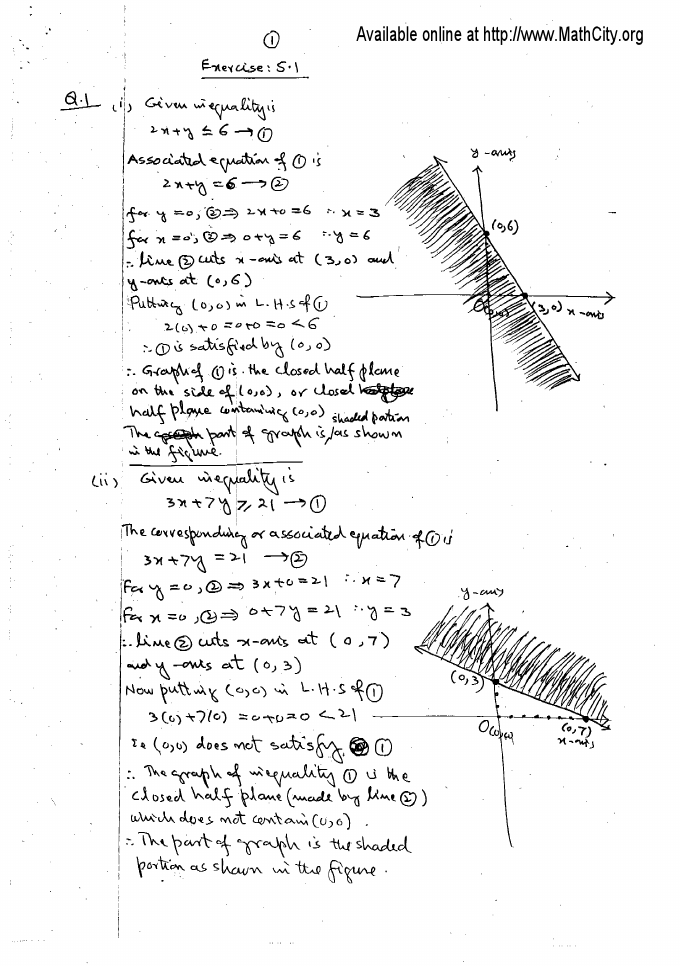 Available online at http://www.MathCity.org
①
Exercise: 5.1
Q.1 (i) Given inequality is
2x+y ≤ 6 → ①
Associated equation of ① is
2x+y = 6 → ②
for y = 0, ② ⇒ 2x+0 = 6 ∴ x = 3
for x = 0, ② ⇒ 0+y = 6 ∴ y = 6
∴ line ② cuts x-axis at (3,0) and
y-axis at (0,6)
Putting (0,0) in L.H.S of ①
2(0)+0 = 0+0 = 0 < 6
∴ ① is satisfied by (0,0)
∴ Graph of ① is the closed half plane
on the side of (0,0), or closed
half plane containing (0,0)
The part of graph is shaded portion as shown
in the figure.
y-axis
(0,6)
O(0,0)
(3,0)
x-axis
(ii) Given inequality is
3x+7y ≥ 21 → ①
The corresponding or associated equation of ① is
3x+7y = 21 → ②
For y = 0, ② ⇒ 3x+0 = 21 ∴ x = 7
For x = 0, ② ⇒ 0+7y = 21 ∴ y = 3
∴ line ② cuts x-axis at (0,7)
and y-axis at (0,3)
Now putting (0,0) in L.H.S of ①
3(0)+7(0) = 0+0 = 0 < 21
ie (0,0) does not satisfy ①
∴ The graph of inequality ① is the
closed half plane (made by line ②)
which does not contain (0,0).
∴ The part of graph is the shaded
portion as shown in the figure.
y-axis
(0,3)
O(0,0)
(0,7)
x-axis